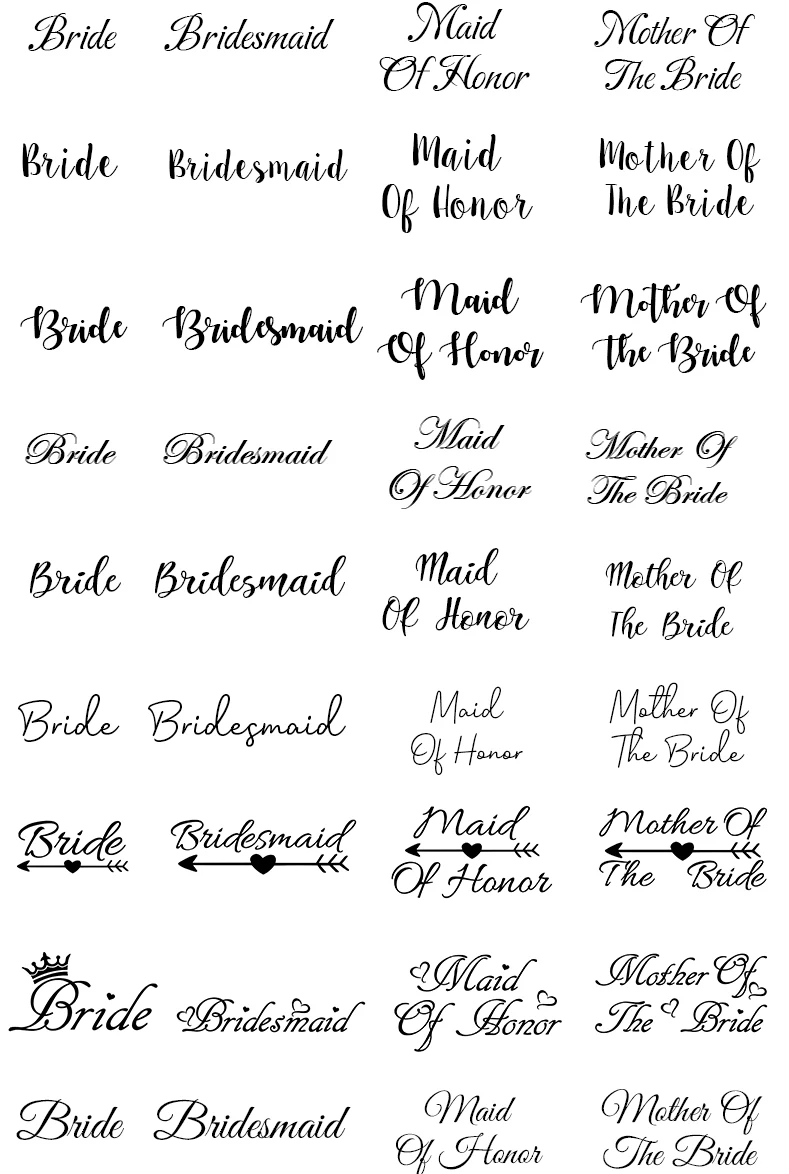 Bride Bridesmaid Maid Mother Of
Of Honor The Bride
Bride Bridesmaid Maid Mother Of
Of Honor The Bride
Bride Bridesmaid Maid Mother Of
Of Honor The Bride
Bride Bridesmaid Maid Mother Of
Of Honor The Bride
Bride Bridesmaid Maid Mother Of
Of Honor The Bride
Bride Bridesmaid Maid Mother Of
Of Honor The Bride
Bride Bridesmaid Maid Mother Of
Of Honor The Bride
Bride Bridesmaid Maid Mother Of
Of Honor The Bride
Bride Bridesmaid Maid Mother Of
Of Honor The Bride